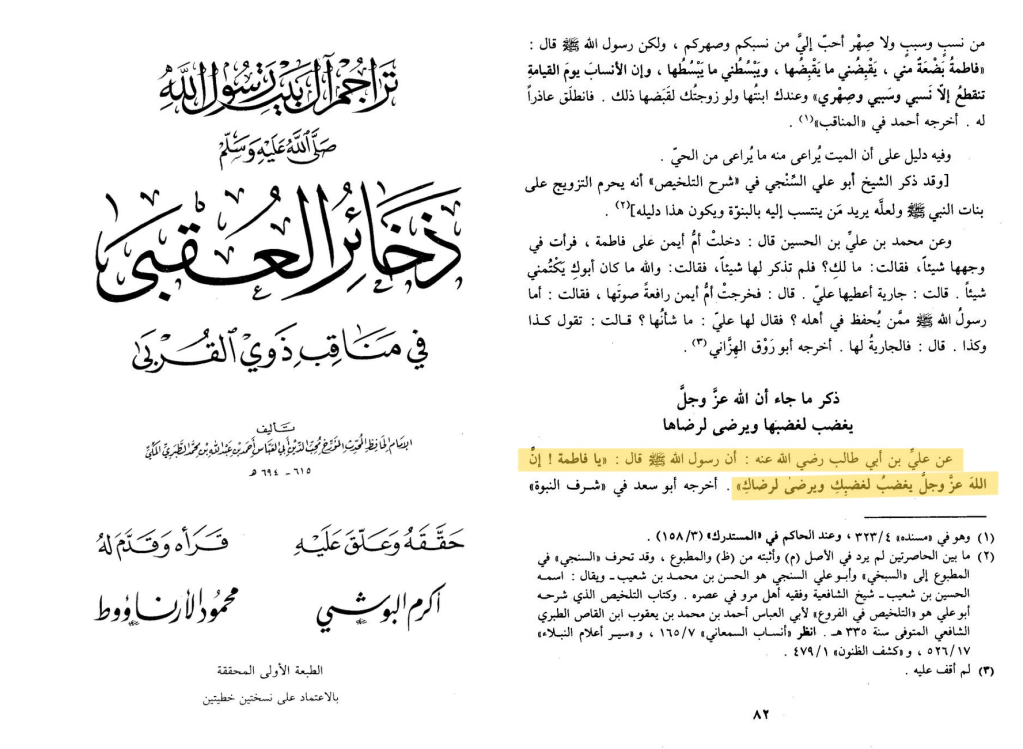 تراجم آل بيت رسول الله
صلى الله عليه وسلم
ذخائر العقبى
في مناقب ذوي القربى
تأليف
الإمام الحافظ المحدث المؤرخ محب الدين أبي العباس أحمد بن عبد الله بن محمد الطبري المكي
٦١٥ - ٦٩٤ هـ
حققه وعلق عليه
أكرم البوشي
قرأه وقدم له
محمود الأرناؤوط
الطبعة الأولى المحققة
بالاعتماد على نسختين خطيتين
من نسبٍ وسببٍ ولا صِهْر أحبّ إليَّ من نسبكم وصهركم ، ولكن رسول الله ﷺ قال :
«فاطمةُ بَضْعَةٌ مني ، يَقْبضُني ما يَقْبِضُها ، ويَبْسُطُني ما يَبْسُطُها ، وإن الأنسابَ يومَ القيامةِ
تنقطعُ إلّا نَسبي وسَببي وصِهْري» وعندك ابنتُها ولو زوجتُك لقَبضها ذلك . فانطلَق عاذراً
له . أخرجه أحمد في «المناقب»(١) .
وفيه دليل على أن الميت يُراعى منه ما يُراعى من الحيّ .
[وقد ذكر الشيخ أبو علي السِّنْجي في «شرح التلخيص» أنه يحرم التزويج على
بنات النبي ﷺ ولعلَّه يريد مَن ينتسب إليه بالبنوّة ويكون هذا دليله](٢) .
وعن محمد بن عليِّ بن الحسين قال : دخلتْ أمُّ أيمن على فاطمة ، فرأت في
وجهها شيئاً، فقالت: ما لكِ؟ فلم تذكر لها شيئاً، فقالت: والله ما كان أبوكِ يَكْتُمني
شيئاً . قالت : جارية أعطيها عليّ . قال : فخرجتْ أمُّ أيمن رافعةً صوتَها ، فقالت : أما
رسولُ الله ﷺ ممَّن يُحفظ في أهله ؟ فقال لها عليّ : ما شأنُها ؟ قالت : تقول كذا
وكذا . قال : فالجاريةُ لها . أخرجه أبو رَوْق الهِزَّاني(٣) .
ذكر ما جاء أن الله عزَّ وجلَّ
يغضب لغضبَها ويرضى لرضاها
عن عليِّ بن أبي طالب رضي الله عنه : أن رسول الله ﷺ قال : «يا فاطمة ! إنَّ
اللهَ عزَّ وجلَّ يغضبُ لغضبِكِ ويرضى لرضاكِ» . أخرجه أبو سعد في «شرف النبوة»
(١) وهو في «مسنده» ٣٢٣/٤ ، وعند الحاكم في «المستدرك» (١٥٨/٣) .
(٢) ما بين الحاصرتين لم يرد في الأصل (م) وأثبته من (ظ) والمطبوع ، وقد تحرف «السنجي» في
المطبوع إلى «السبخي» وأبو علي السنجي هو الحسن بن محمد بن شعيب ـ ويقال : اسمه
الحسين بن شعيب ـ شيخ الشافعية وفقيه أهل مرو في عصره . وكتاب التلخيص الذي شرحه
أبو علي هو «التلخيص في الفروع» لأبي العباس أحمد بن محمد بن يعقوب ابن القاص الطبري
الشافعي المتوفى سنة ٣٣٥ هـ . انظر «أنساب السمعاني» ١٦٥/٧ ، و «سير أعلام النبلاء»
٥٢٦/١٧ ، و «كشف الظنون» ٤٧٩/١ .
(٣) لم أقف عليه .
٨٢